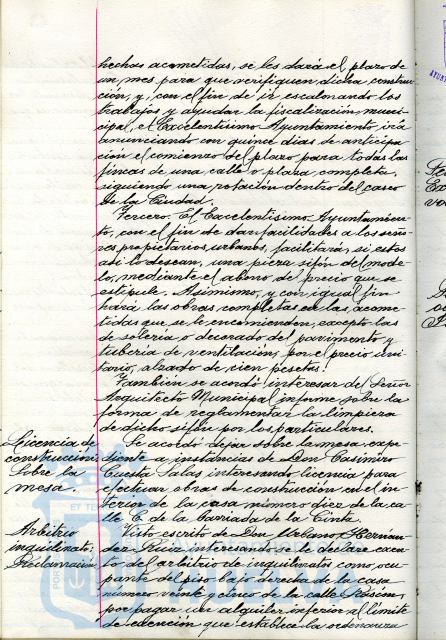 hechos acometidas, se les dará el plazo de
un mes para que verifiquen dicha construc-
ción, y, con el fin de ir escalonando los
trabajos y ayudar la fiscalización muni-
cipal, el Excelentísimo Ayuntamiento, irá
anunciando con quince días de anticipa-
ción el comienzo del plazo para todas las
fincas de una calle o plaza completa,
siguiendo una rotación dentro del casco
de la Ciudad.
Tercero. El Excelentísimo Ayuntamien-
to, con el fin de dar facilidades a los seño-
res propietarios urbanos, facilitará, si estos
así lo desean, una pieza sifón del mode-
lo, mediante el abono de precio que se
estipule. Asimismo, y con igual fin
hará las obras completas en las acome-
tidas que se le encomienden, excepto las
de solería o decorado del pavimento y
tubería de ventilación, por el precio uni-
tario, alzado de cien pesetas.
También se acordó interesar del Señor
Arquitecto Municipal informe sobre la
forma de reglamentar la limpieza
de dicho sifón por los particulares.
Licencia de
construcción:
Sobre la
mesa.
Se acordó dejar sobre la mesa, expe-
diente a instancias de Don Casimiro
Cuesta Salas interesando licencia para
efectuar obras de construcción en el in-
terior de la casa número diez de la ca-
lle E. de la Barriada de la Cinta.
Arbitrio
inquilinato:
Reclamación
Visto escrito de Don Urbano Hernan-
dez Ruiz interesando se le declare exen-
to del arbitrio de inquilinatos como ocu-
pante del piso bajo derecha de la casa
número veinte y cinco de la calle Rascón,
por pagar un alquiler inferior al límite
de exención que establece la ordenanza